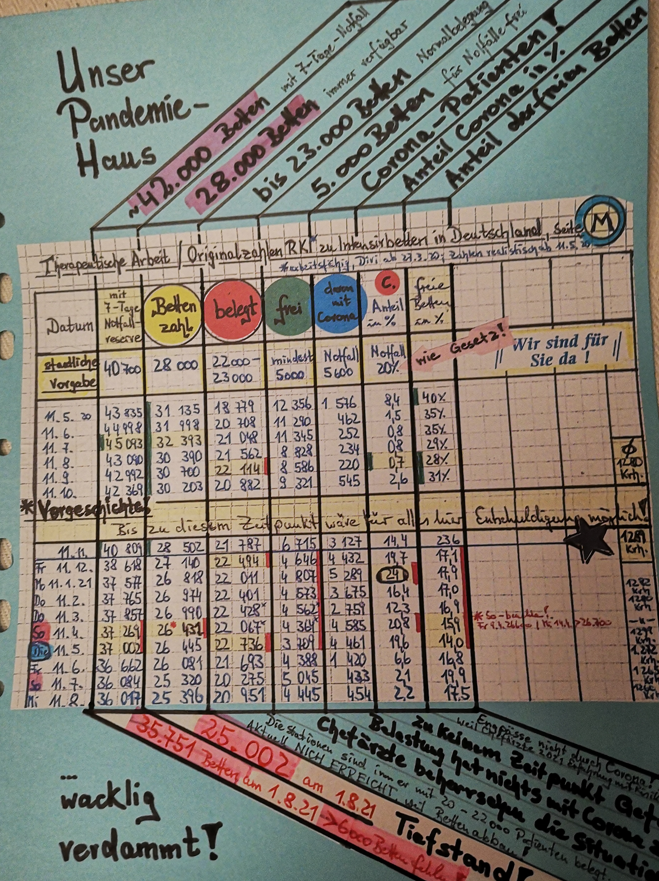 Unser
Pandemie-
Haus
~42.000 Betten mit 7-Tage-Notfall
28.000 Betten immer verfügbar
bis 23.000 Betten Normalbelegung
5.000 Betten für Notfälle frei
Corona-Patienten!
Anteil Corona in %
Anteil der freien Betten
Therapeutische Arbeit / Originalzahlen RKI zu Intensivbetten in Deutschland Seite
M
Datum
mit 7-Tage Notfall reserve
Betten zahl
belegt
frei
davon mit Corona
C. Anteil in %
freie Betten in %
wie Gesetz!
Wir sind für Sie da!
staatliche Vorgabe 40 700 28 000 22 000 - 23 000 mindest 5000 Notfall 5600 Notfall 20%
11. 5. 20 43 835 31 135 18 779 12 356 1 576 8,4 40%
11. 6. 44 998 31 998 20 708 11 290 462 1,5 35%
11. 7. 45 093 32 393 21 048 11 345 252 0,8 35%
11. 8. 43 090 30 390 21 562 8 828 234 0,8 29%
11. 9. 42 992 30 700 22 114 8 586 220 0,7 28%
11. 10. 42 369 30 203 20 882 9 321 545 2,6 31%
Ø 1280 Krh.
* Vorgeschichte!
Bis zu diesem Zeitpunkt wäre für alles hier Entschuldigung möglich!
11. 11. 40 809 28 502 21 787 6 715 3 127 14,4 23,6
1289 Krh.
Fr 11. 12. 38 618 27 140 22 494 4 646 4 432 19,7 17,1
Mo 11. 1. 21 37 577 26 818 22 011 4 807 5 289 24 17,9
Do 11. 2. 37 765 26 974 22 401 4 573 3 675 16,4 17,0
Do 11. 3. 37 857 26 990 22 428* 4 562 2 759 12,3 16,9
So 11. 4. 37 269 26 431 22 067 4 364 4 585 20,8 15,9
Die 11. 5. 37 002 26 445 22 736 3 709 4 461 19,6 14,0
Fr 11. 6. 36 662 26 081 21 693 4 388 1 420 6,6 16,8
So 11. 7. 36 084 25 320 20 275 5 045 433 2,1 19,9
Mi 11. 8. 36 017 25 396 20 951 4 445 454 2,2 17,5
Engpässe nicht durch Corona!
zu keinem Zeitpunkt
Belastung hat nichts mit Corona
Chefärzte beherrschen die
Die Stationen sind immer mit 20 - 22 000 Patienten belegt
Aktuell NICH ERREICHT, weil Bettenabbau!
25.002 am 1.8.21 Tiefstand!
35.751 Betten am 1.8.21 > 6000 Betten fehlen!
... wacklig
verdammt!